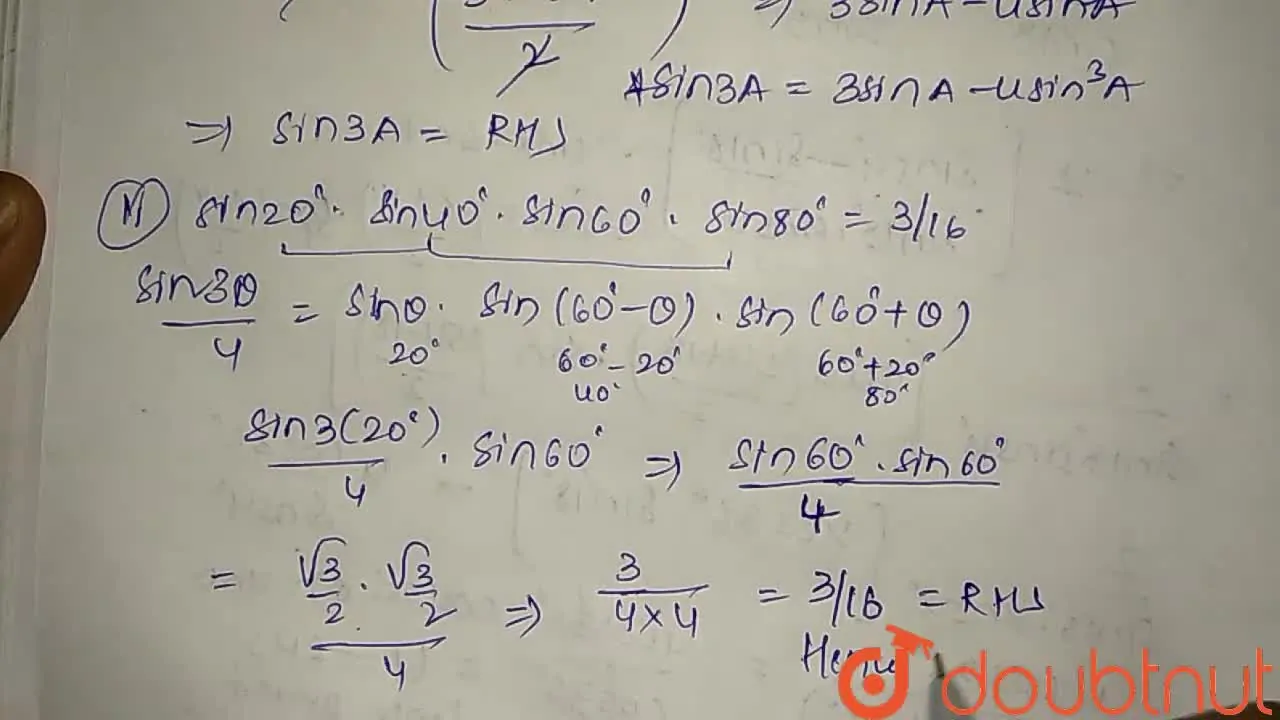 ⇒ 3sinA - 4sin³A
2
sin3A = 3sinA - 4sin³A
⇒ sin3A = RHS
sin20°. sin40°. sin60°. sin80° = 3/16
sin3θ/4 = sinθ. sin(60°-θ). sin(60°+θ)
20° 60°-20° 60°+20°
40° 80°
sin3(20°)/4 . sin60° ⇒ sin60°.sin60°/4
= √3/2 . √3/2 / 4 ⇒ 3/4×4 = 3/16 = RHS
doubtnut